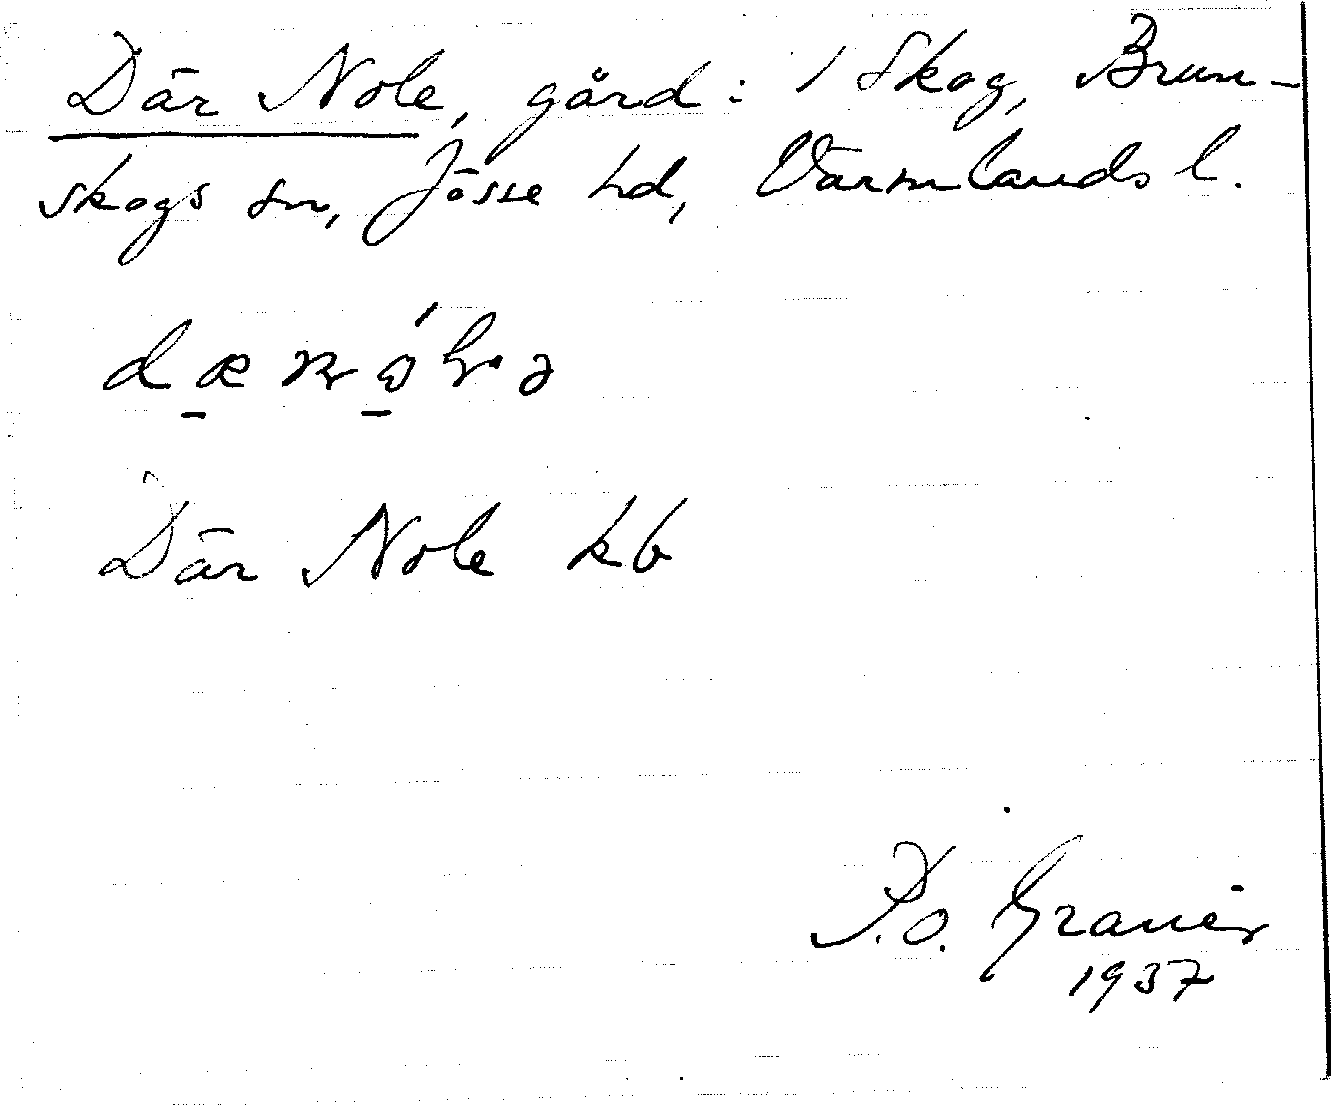 Där Nole, gård: 1 Skog, Brun-
skogs sn, Jösse hd, Värmlands l.
Där Nole kb
P.O. Granér
1937